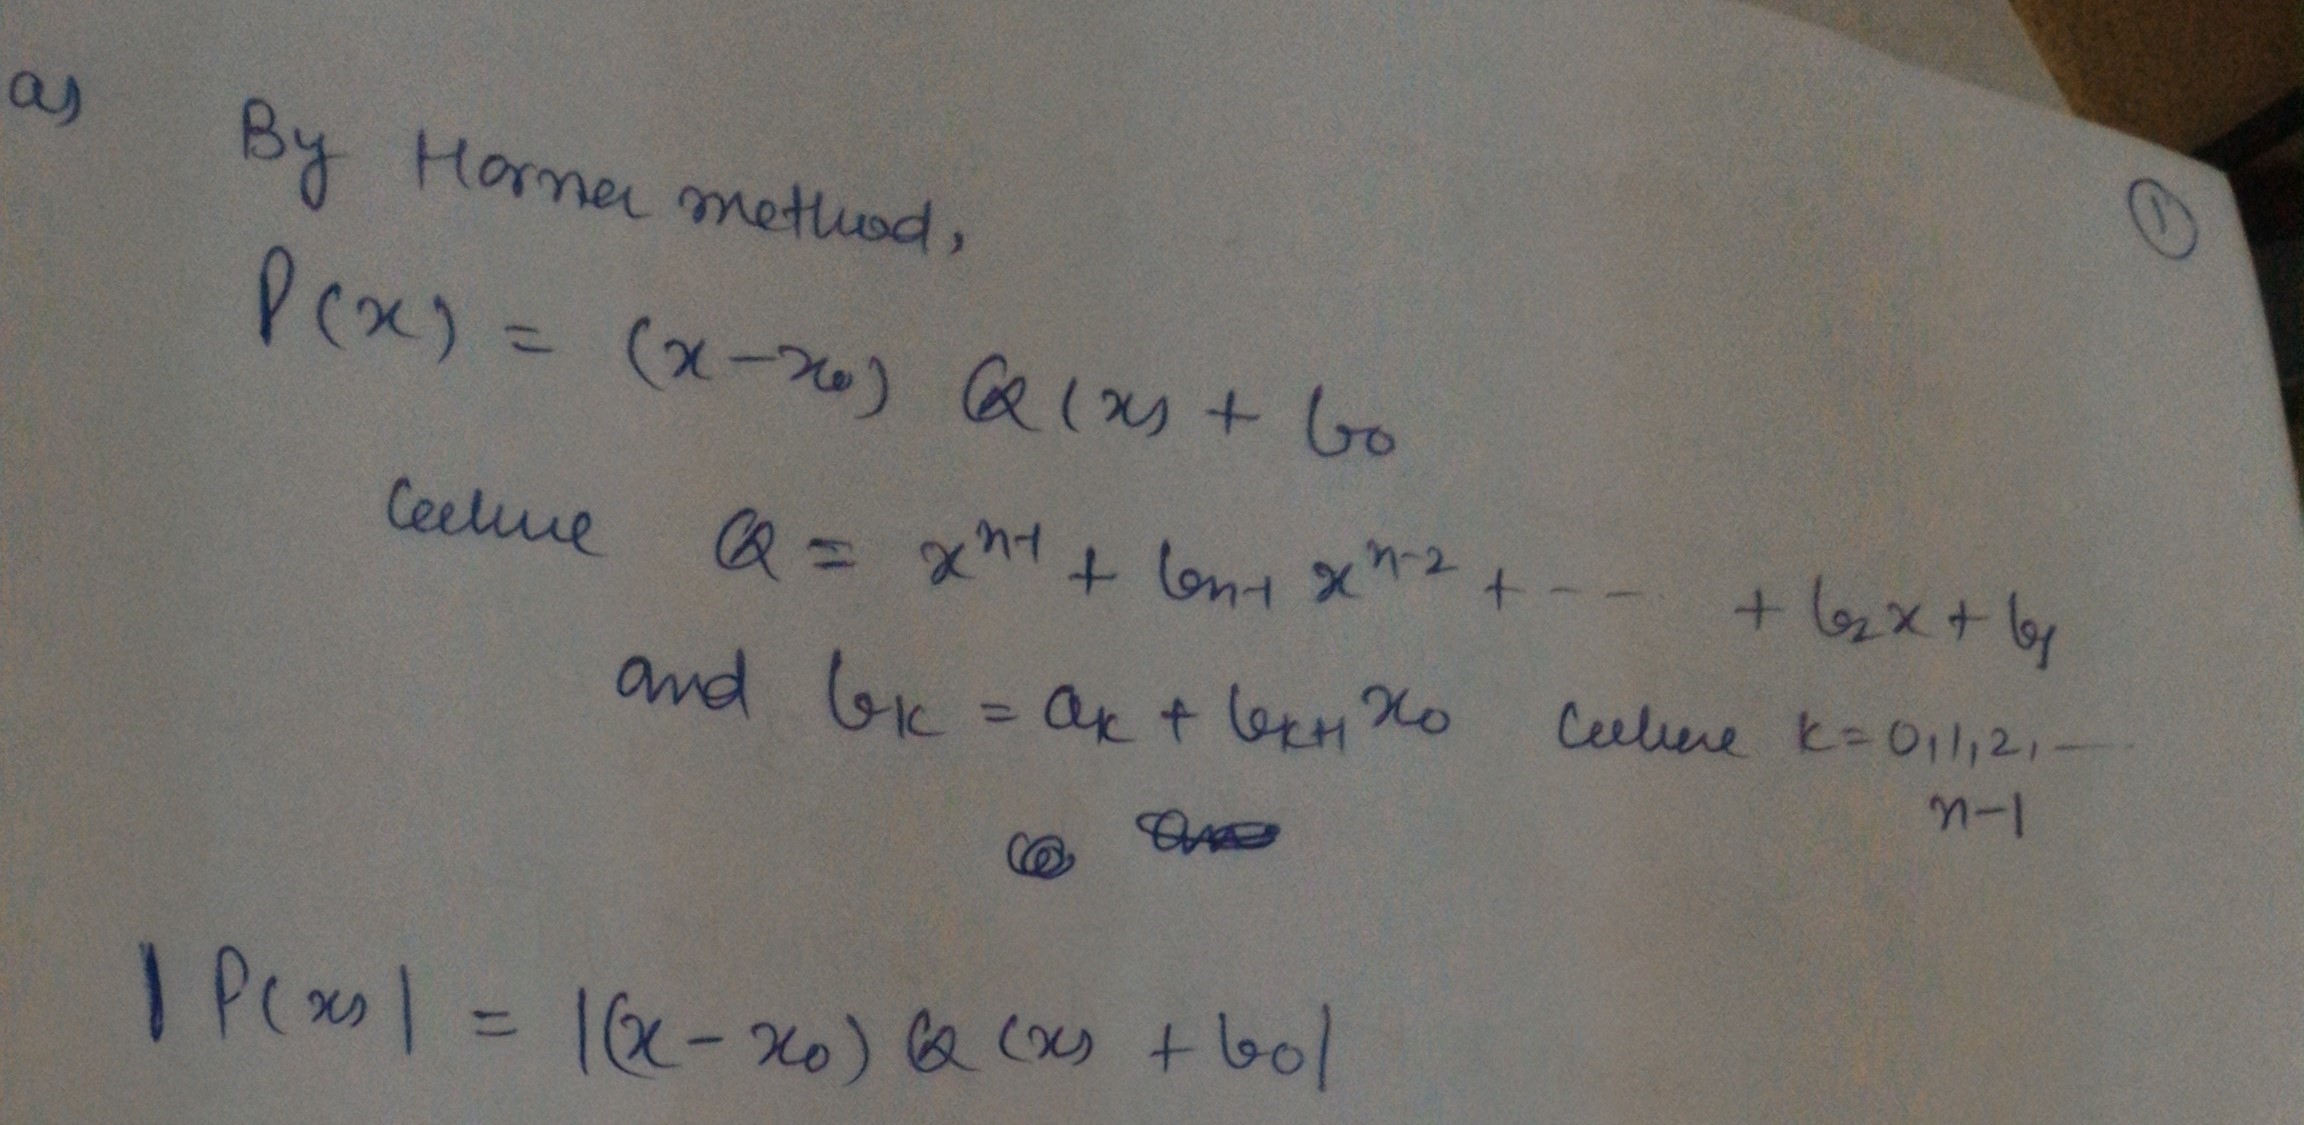 a)
By Horner method,
①
P(x) = (x-x₀) Q(x) + b₀
where Q = xⁿ⁻¹ + bₙ₋₁ xⁿ⁻² + --- + b₂x + b₁
and bₖ = aₖ + bₖ₊₁ x₀ where k=0,1,2,---
n-1
|P(x)| = |(x-x₀) Q(x) + b₀|